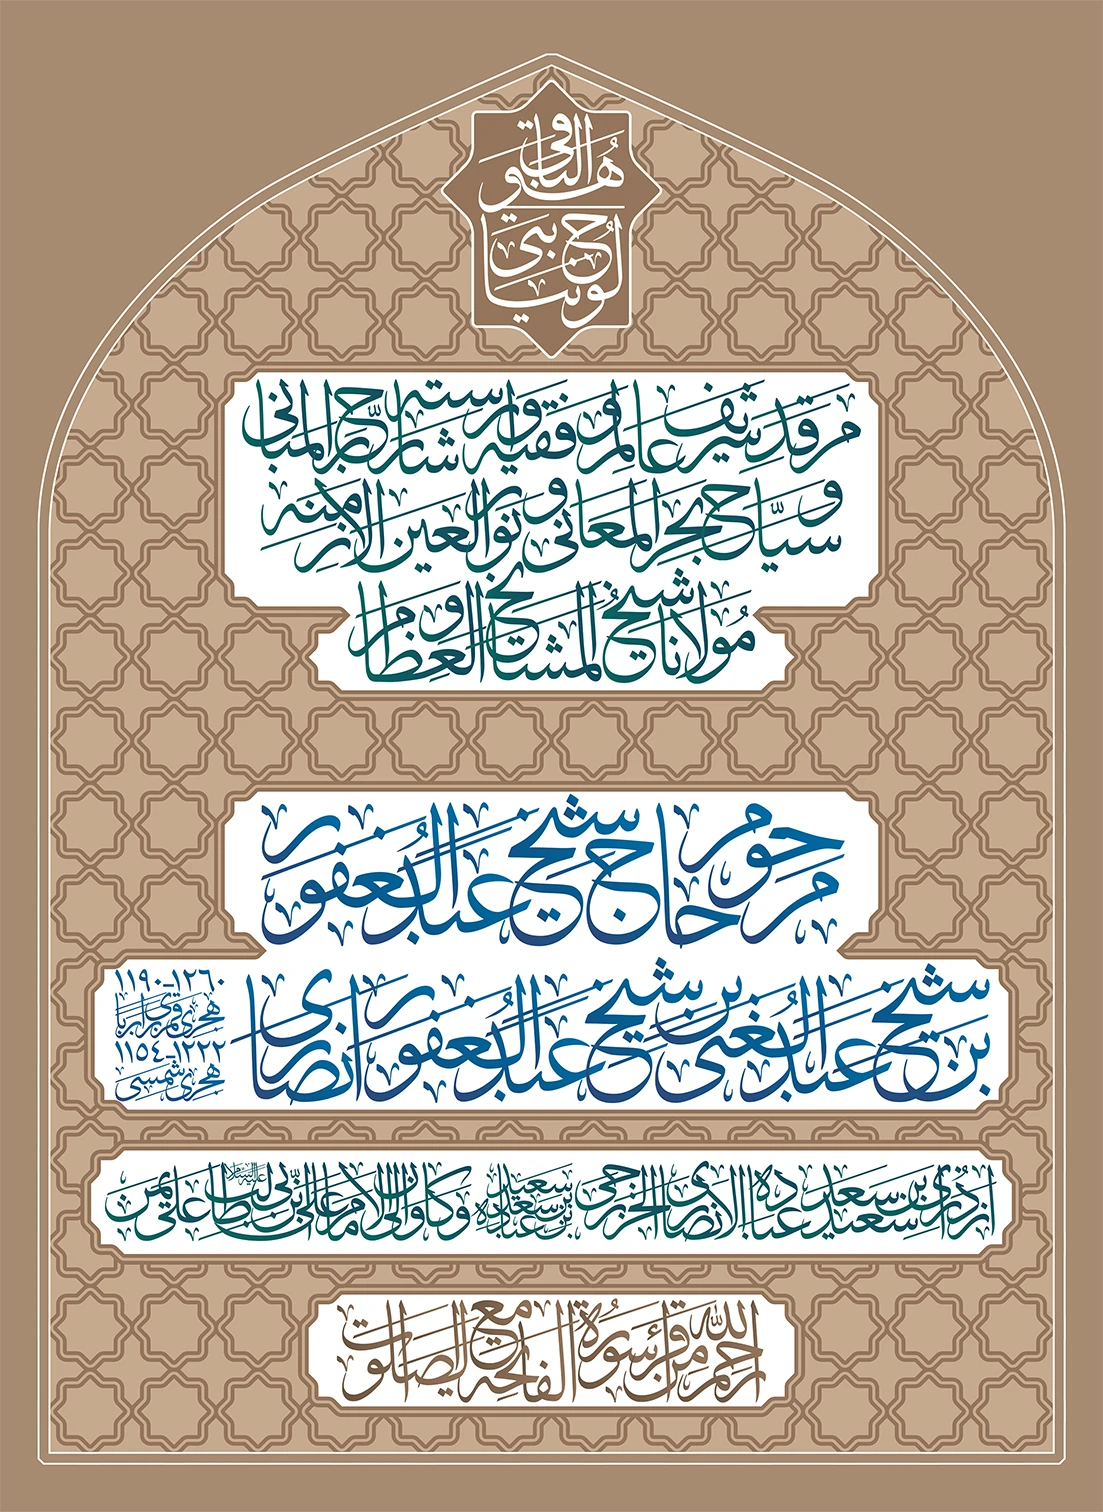 هو الباقی
مرقد شریف عالم و فقیه وارسته شارح المبانی
و سیّاح بحر المعانی و نور العین الازمنه
مولانا شیخ المشایخ و العظام
مرحوم حاج شیخ عبدالغفور
بن شیخ عبدالغنی بن شیخ عبدالغفور انصاری
١١٩٠-١٢٦٠
هجری قمری برابر با
١١٥٤-١٢٢٢
هجری شمسی
از ذراری بن سعید سعید عباده الانصاری الخزرجی سعید بن سعد بن عباده و کان والی الامام علی بن ابی طالب علیه السلام علی یمن
ارحم الله من قرأ سورة الفاتحه مع الصلوات